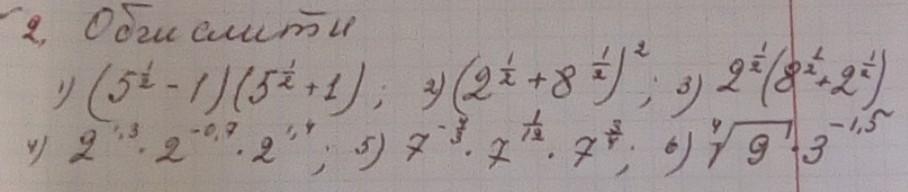 2. Обчислити
1) (5^{1/2} - 1)(5^{1/2} + 1); 2) (2^{1/2} + 8^{1/2})^2; 3) 2^{1/2}(8^{1/2} + 2^{1/2})
4) 2^{1,3} · 2^{-0,7} · 2^{1,4}; 5) 7^{-4/3} · 7^{1/12} · 7^{3/4}; 6) \sqrt[4]{9} · 3^{-1,5}